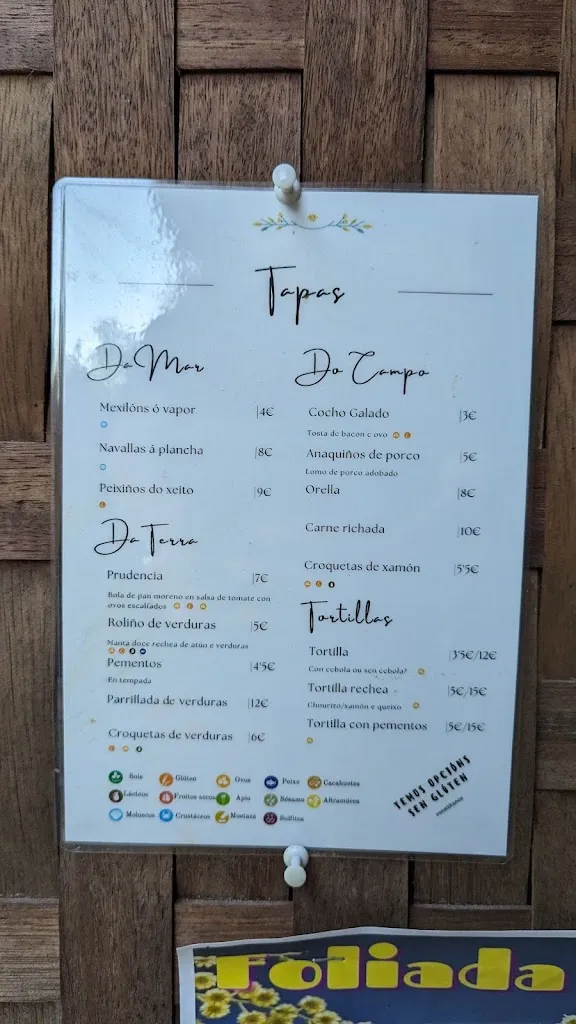 Tapas
Da Mar
Mexilóns ó vapor |4€
Navallas á plancha |8€
Peixiños do xeito |9€
Da Terra
Prudencia |7€
Bola de pan moreno en salsa de tomate con
ovos escalfados
Roliño de verduras |5€
Manta doce rechea de atún e verduras
Pementos |4'5€
En tempada
Parrillada de verduras |12€
Croquetas de verduras |6€
Do Campo
Cocho Galado |3€
Tosta de bacon e ovo
Anaquiños de porco |5€
Lomo de porco adobado
Orella |8€
Carne richada |10€
Croquetas de xamón |5'5€
Tortillas
Tortilla |3'5€/12€
Con cebola ou sen cebola?
Tortilla rechea |5€/15€
Chourizo/xamón e queixo
Tortilla con pementos |5€/15€
Soia Glúten Ovos Peixe Cacahuetes
Lácteos Froitos secos Apio Sésamo Altramúces
Moluscos Crustáceos Mostaza Sulfitos
TEMOS OPCIÓNS
SEN GLÚTEN
Foliada